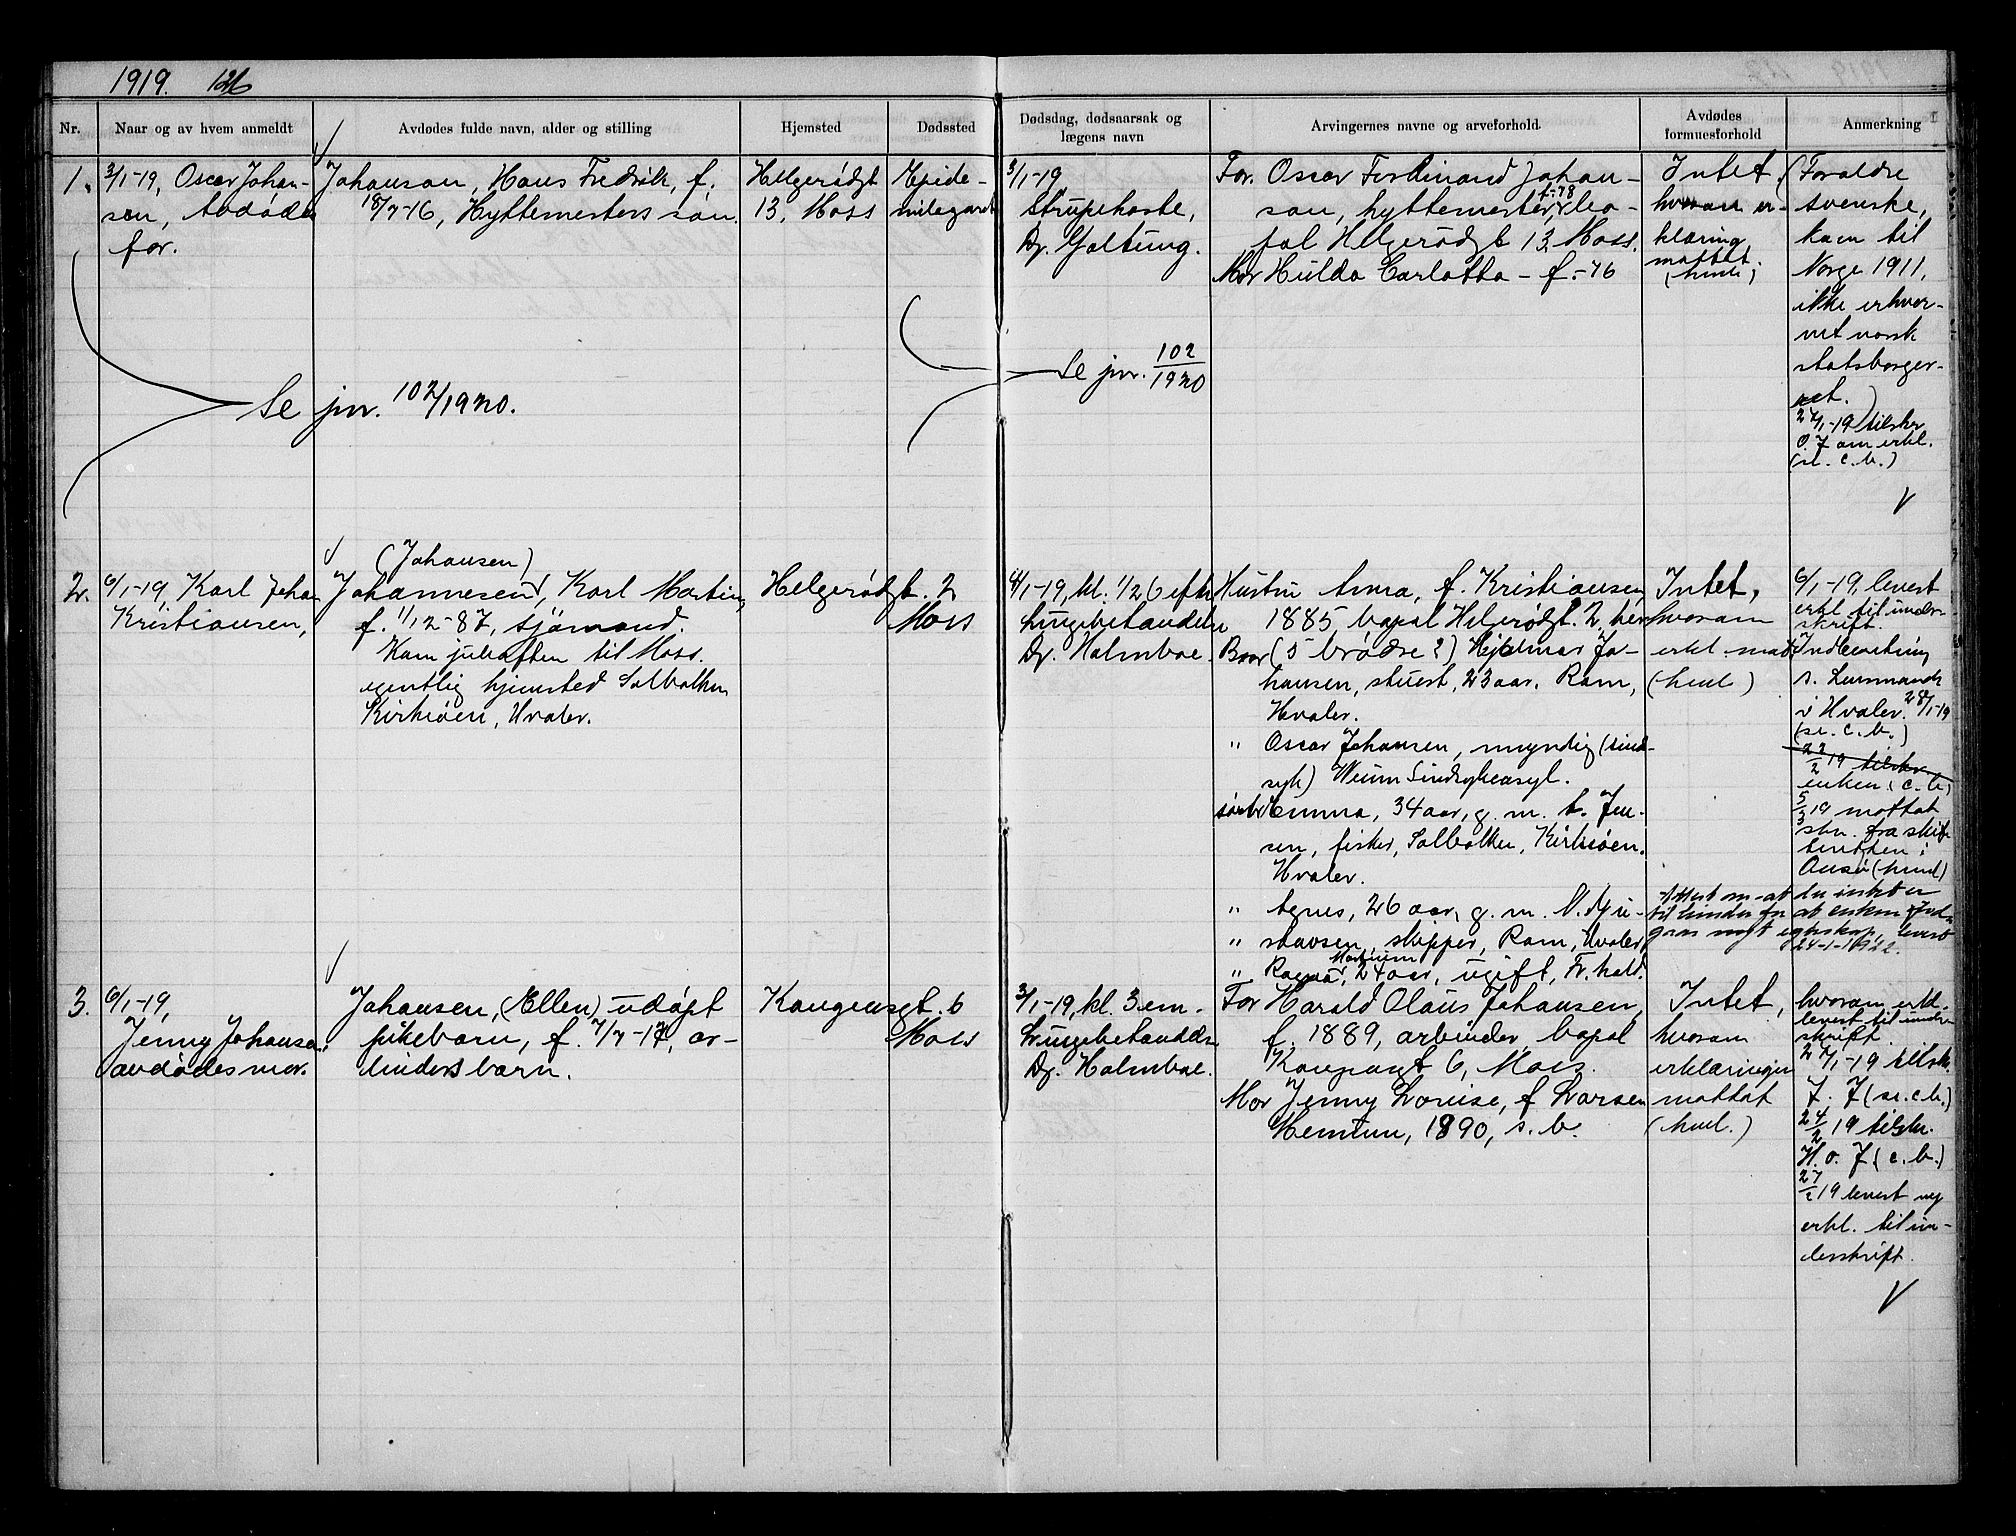 1919.
Nr.
Naar og av hvem anmeldt
Avdødes fulde navn, alder og stilling
Hjemsted
Dødssted
Dødsdag, dødsaarsak og
lægens navn
Arvingernes navne og arveforhold.
Avdødes
formuesforhold
Anmerkning
1.
3/1-19, Oscar Johan-
son, Avdødes
far.
Johanson, Hans Fredrik, f.
18/7-16, Hyttemesters søn.
Helgerødgt
13, Moss
Epide-
milazaret
3/1-19,
Strupehoste,
Dr. Galtung.
Far. Oscar Ferdinand Johan-
f.-78
son, hyttemester, bo-
pal Helgerødgt 13, Moss.
Mor Hulda Carlotta - f. -76
Intet,
hvorom er-
klæring
mottat
(hml;
(Foraldre
svenske,
kom til
Norge 1911,
ikke erhver-
vet norsk
statsborger-
ret.)
27/1-19 tilskr.
O. J om erkl.
(se. c. b.)
Se jnr. 102/1920.
Se jnr. 102/1920
2.
6/1-19, Karl Johan
Kristiansen,
(Johansen)
Johannesen, Karl Martin,
f. 1/12-87, sjömand.
Kom juleaften til Moss.
egentlig hjemsted Solbakken,
Kirkeöen, Hvaler.
Helgerødgt. 2
Moss
4/1-19, kl. 1/2 6 eftm
Lungebetændelse
Dr. Holmboe.
Hustru Anna, f. Kristiansen,
1885 bopal Helgerødgt. 2, her
Bror (5 brödre?) Hjalmar Jo-
hansen, stuert, 23 aar, Ram,
Hvaler.
" Oscar Johansen, myndig (sind-
syk) Veum Sindsykeasyl.
søster Emma, 34 aar, g. m. L. Jen-
sen, fisker, Solbakken, Kirkeöen.
Hvaler.
" Agnes, 26 aar, g. m.
" skipper, Ram, Hvaler,
" Ragna, 24 aar, ugift, Fr.hald.
Intet,
hvorom
erkl. mott
(hml.)
6/1-19, levert
erkl. til under-
skrift.
Indberetning
s. Lensmand
i Hvaler. 28/1-19
(se. c. b.)
22/2 19 tilskr.
enken (c. b)
5/3 19 mottat
skr. fra skif-
teretten i
Onsö (hml)
Attest om at der intet er
til hinder for at enken ind-
gaar nyt egteskap, levert
24-1-1922.
3.
6/1-19,
Jenny Johansen,
avdødes mor.
Johansen, (Ellen) udöpt
pikebarn, f. 7/7-17, ar-
beiders barn.
Kongensgt. 6
Moss
3/1-19, kl. 3 em.
Lungebetændelse
Dr. Holmboe.
Far Harald Olaus Johansen,
f. 1889, arbeider, bopal
Kongensgt 6, Moss.
Mor Jenny Lovise, f Larsen
1890, s. b.
Intet,
hvorom
erklæringen
mottat
(hml.)
hvorom erkl.
levert til under-
skrift.
27/1-19 tilskr.
J. J (se. c. b.)
24/2 19 tilskr.
H. O. J. (c. b.)
27/2 19 levert ny
erkl. til un-
derskrift.